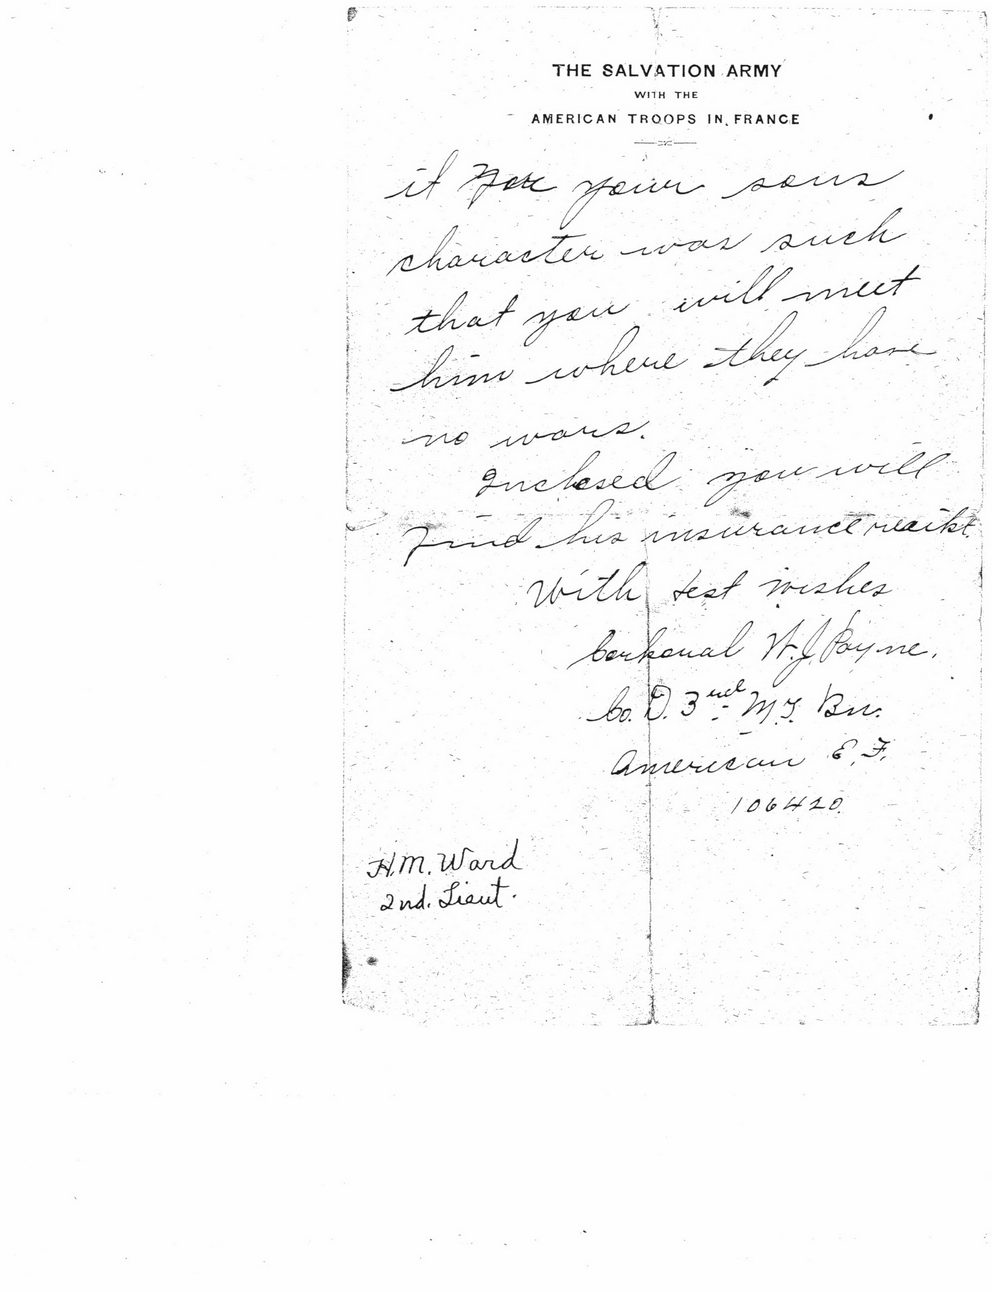 THE SALVATION ARMY
WITH THE
AMERICAN TROOPS IN FRANCE
it For your sons
character was such
that you will meet
him where they have
no wars.
Inclosed you will
find his insurance recikt.
With best wishes
Corporal W. J. Payne.
Co. D. 3rd M. T. Bn.
American E. F.
106420.
H. M. Ward
2nd. Lieut.